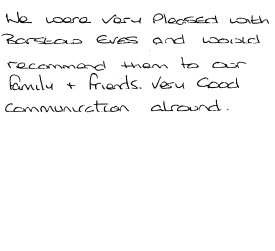 We were very pleased with
Barstow Eves and would
recommend them to our
family + friends. Very Good
communication alround.